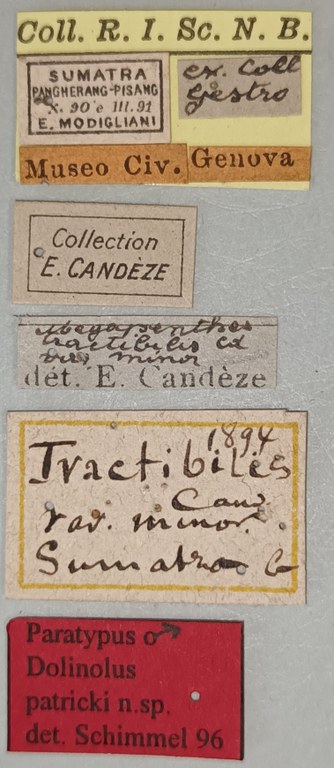 Coll. R. I. Sc. N. B.
SUMATRA
PANGHERANG-PISANG
X. 90 e III. 91
E. MODIGLIANI
ex. Coll
Gestro
Museo Civ. Genova
Collection
E. CANDÈZE
Megapenthes
tractibilis Cd
var minor
dét. E. Candèze
1894
Tractibiles
Cand
var. minor.
Sumatra
Paratypus ♂
Dolinolus
patricki n.sp.
det. Schimmel 96